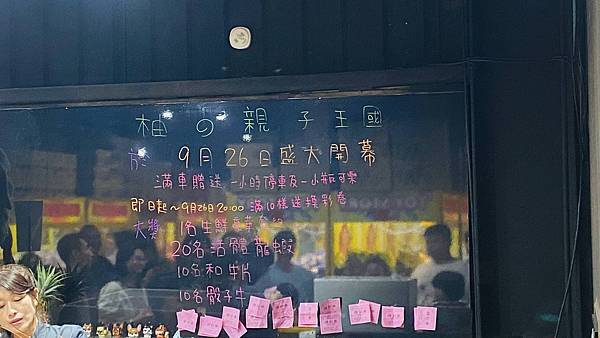 柚の親子王國
於 9月26日盛大開幕
滿車贈送一小時停車及一小瓶可樂
即日起~9月26日20:00 滿10樣送摸彩卷
大獎 1名生鮮
20名活體龍蝦
10名和牛片
10名骰子牛